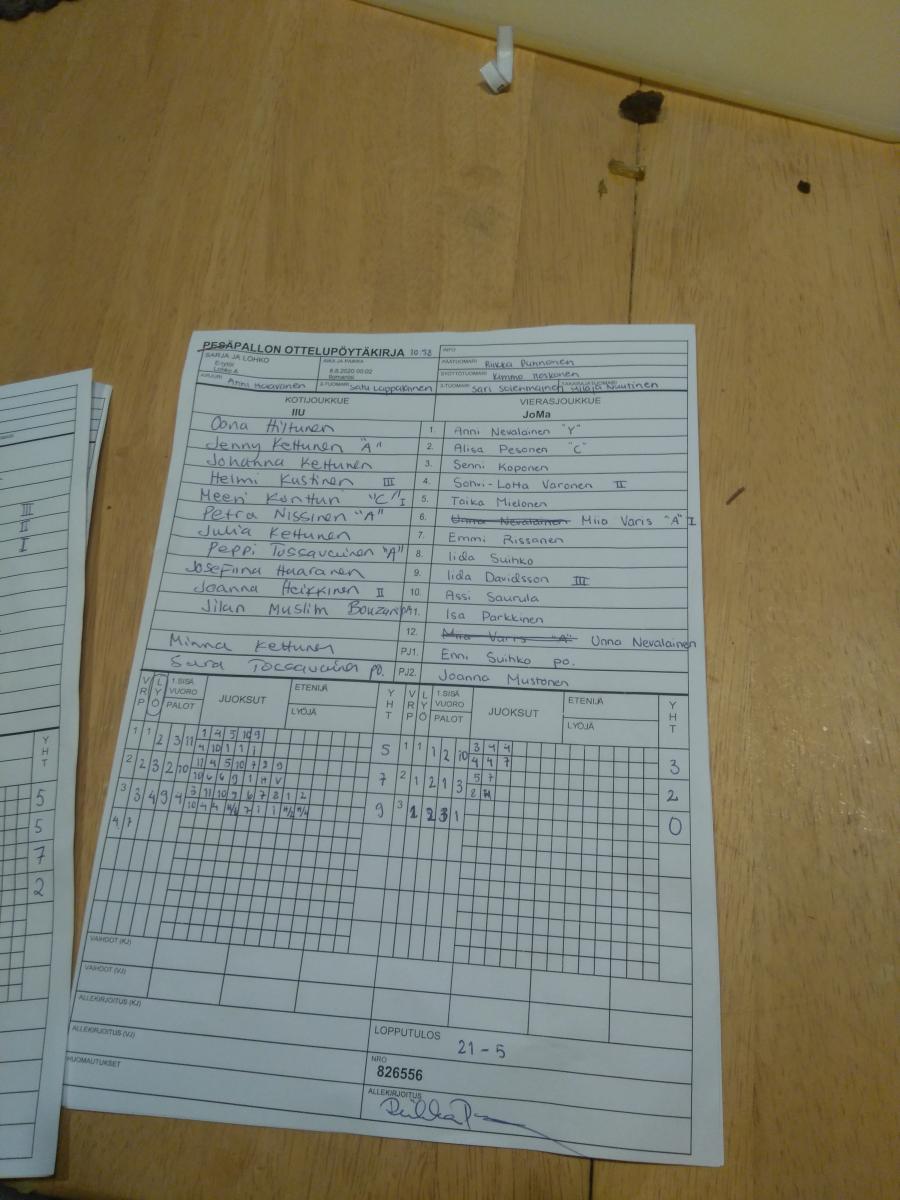 PESÄPALLON OTTELUPÖYTÄKIRJA 10:58
INFO
SARJA JA LOHKO
E-tytöt
Lohko A
AIKA JA PAIKKA
8.8.2020 00:02
PÄÄTUOMARI Riikka Punnonen
SYÖTTÖTUOMARI Kimmo
KIRJURI Anni Haavanen
2-TUOMARI Satu Lappalainen
3-TUOMARI Sari TAKARAJATUOMARI Nuutinen
KOTIJOUKKUE
IIU
VIERASJOUKKUE
JoMa
Oona Hiltunen 1. Anni Nevalainen "Y"
Jenny Kettunen "A" 2. Alisa Pesonen "C"
Johanna Kettunen 3. Senni Koponen
Helmi Kustinen III 4. Sohvi-Lotta Varonen II
Meeri Konttun "C" I 5. Taika Mielonen
Petra Nissinen "A" 6. Unna Nevalainen Miia Varis "A" I
Julia Kettunen 7. Emmi Rissanen
Peppi Tossavainen "A" 8. Iida Suihko
Josefiina Haaranen 9. Iida Davidsson III
Joanna Heikkinen II 10. Assi Saurula
Jilan Muslim 11. Isa Parkkinen
12. Miia Varis "A" Unna Nevalainen
Minna Kettunen PJ1. Enni Suihko po.
Sara Tossavainen po. PJ2. Joanna Mustonen
VRP LYÖ 1.SISÄ VUORO PALOT JUOKSUT ETENIJÄ LYÖJÄ YHT VRP LYÖ 1.SISÄ VUORO PALOT JUOKSUT ETENIJÄ LYÖJÄ YHT
1 1 2 3 11 1 4 5 10 9 5 1 1 1 2 10 3 4 4 3
4 10 1 1 1 4 4 7
2 2 3 2 10 11 4 5 10 7 8 9 7 2 1 2 1 3 5 7 2
10 6 6 9 1 H V 8
3 3 4 9 4 3 11 10 9 6 7 8 1 2 9 3 1 2 3 1 0
10 4 4 7 1 1
4 7
VAIHDOT (KJ)
VAIHDOT (VJ)
ALLEKIRJOITUS (KJ)
ALLEKIRJOITUS (VJ)
HUOMAUTUKSET
LOPPUTULOS
21 - 5
NRO
826556
ALLEKIRJOITUS
Riikka P
III
II
I
YHT
5
5
7
2